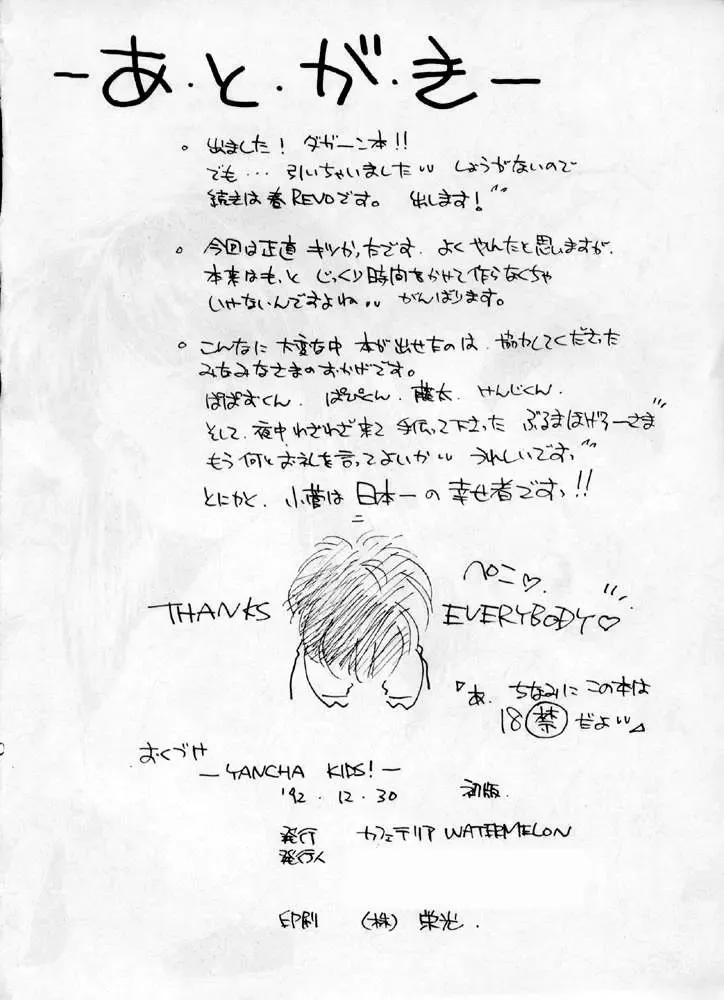 ーあ・と・が・きー
。出ました! ダガーン本!!
でも… 引いちゃいました、、 しょうがないので
続きは春REVOです。 出します!
。今回は正直 キツかったです. よくやんたと思いますが.
本来はもっと じっくり時間をかせて作らなくちゃ
いけないんですよね、、 がんばります。
。こんなに 大変な中 本が出せたのは. 協力してくださった
みなみなさまのおかげです。
ぱぱすくん. ぱぴくん. 藤太. けんじくん.
そして. 夜中わざわざ来て 手伝って下さった ぶるまほげろーさま
もう何とお礼を言ってよいか、、 うれしいです。
とにかく. 小菅は 日本一の幸せ者ですっ!!
ペこ♡.
THANKS EVERYBODY♡
『あ. ちなみに この本は
18禁だよ、、』
おくづけ
ー YANCHA KIDS! ー
'92.12.30 初版.
発行 カフェテリア WATERMELON
発行人
印刷 (株) 栄光.